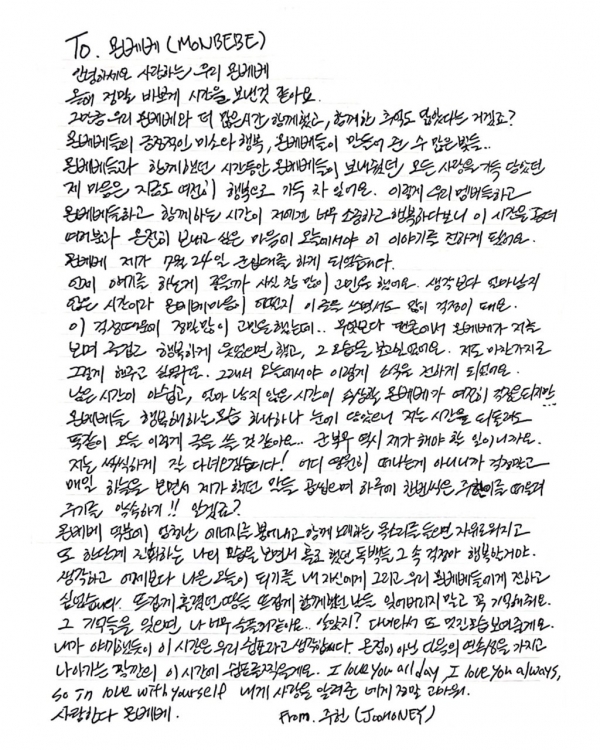 To. 몬베베 (MONBEBE)
안녕하세요 사랑하는 우리 몬베베
올해 정말 바쁘게 시간을 보낸것 같아요.
그만큼 우리 몬베베와 더 많은시간 함께했고, 함께한 추억도 많았다는 거겠죠?
몬베베들의 긍정적인 미소와 행복, 몬베베들이 만들어 준 수 많은 빛들..
몬베베들과 함께했던 시간동안 몬베베들이 보내줬던 모든 사랑을 가득 담았던
제 마음은 지금도 여전히 행복으로 가득 차 있어요. 이렇게 우리 멤버들하고
몬베베들하고 함께하는 시간이 저에겐 너무 소중하고 행복하다보니 이 시간을
여러분과 온전히 보내고 싶은 마음에 오늘에서야 이 이야기를 전하게 됐어요.
몬베베 제가 7월 24일 군입대를 하게 되었습니다.
언제 얘기를 하는게 좋을까 사실 참 많이 고민을 했어요. 생각보다 얼마남지
않은 시간이라 몬베베마음이 어떤지 이 글을 쓰면서도 많이 걱정이 돼요.
이 걱정때문에 정말많이 고민을 했는데.. 무엇보다 팬콘에서 몬베베가 저를
보며 즐겁고 행복하게 웃었으면 했고, 그 모습을 보고싶었어요. 저도 마찬가지로
그렇게 해주고 싶었구요. 그래서 오늘에서야 이렇게 소식을 전하게 되었어요.
남은 시간이 아쉽고, 얼마 남지 않은 시간에 속상할 몬베베가 여전히 걱정 되지만..
몬베베들 행복해하는 모습 하나하나 눈에 담았으니 저는 시간을 되돌려도
똑같이 오늘 이렇게 글을 쓸 것 같아요.. 군복무 역시 제가 해야 할 일이니까요.
저는 씩씩하게 잘 다녀오겠습니다! 어디 영원히 떠나는게 아니니까 걱정말고
매일 하늘을 보면서 제가 했던 말들 곱씹으며 하루에 한번씩은 주헌이를 떠올려
주기를 약속하기!! 알겠죠?
몬베베 덕분에 엄청난 에너지를 뿜어내고 함께 노래하는 목소리를 들으면 자유로워지고
또 한단계 진화하는 나의 모습을 보면서 홀로 했던 독백들 그 속 걱정마 행복한거야.
생각하고 어제보다 나은 오늘이 되기를 내 자신에게 그리고 우리 몬베베들에게 전하고
싶었습니다. 뜨겁게 흘렸던 땀들 뜨겁게 함께했던 날들 잊어버리지 말고 꼭 기억해줘요.
그 기억들을 잊으면 나 너무 슬플거같아요.. 알았지? 다녀와서 또 멋진모습 보여줄게요.
내가 얘기했듯이 이 시간은 우리 쉼표라고 생각합니다. 온점이 아닌 다음의 연속성을 가지고
나아가는 잠깐의 이 시간에 쉼표를찍을게요. I love you all day, I love you always,
so in love with yourself 내게 사랑을 알려준 네게 정말 고마워.
사랑한다 몬베베.
From. 주헌 (JOOHONEY)